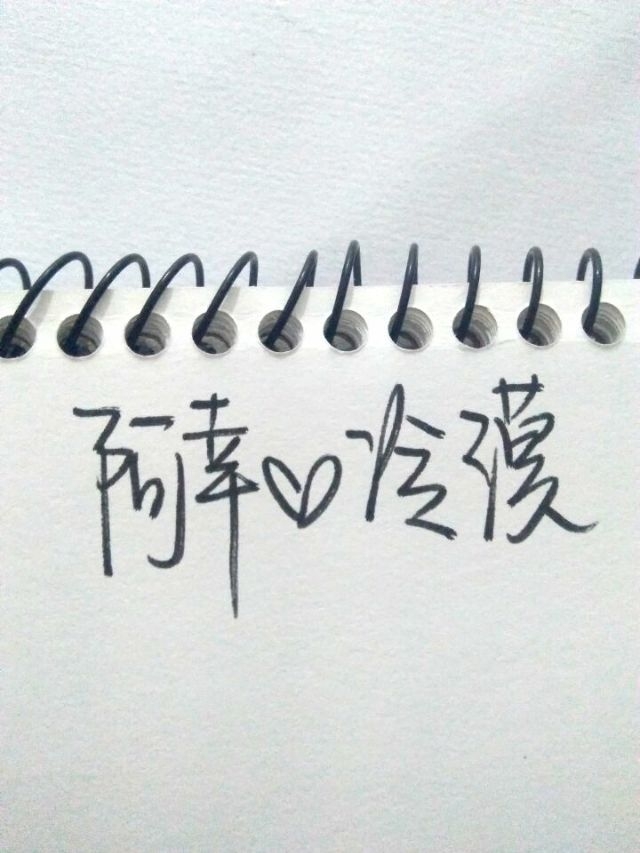 阿幸♡冷漠